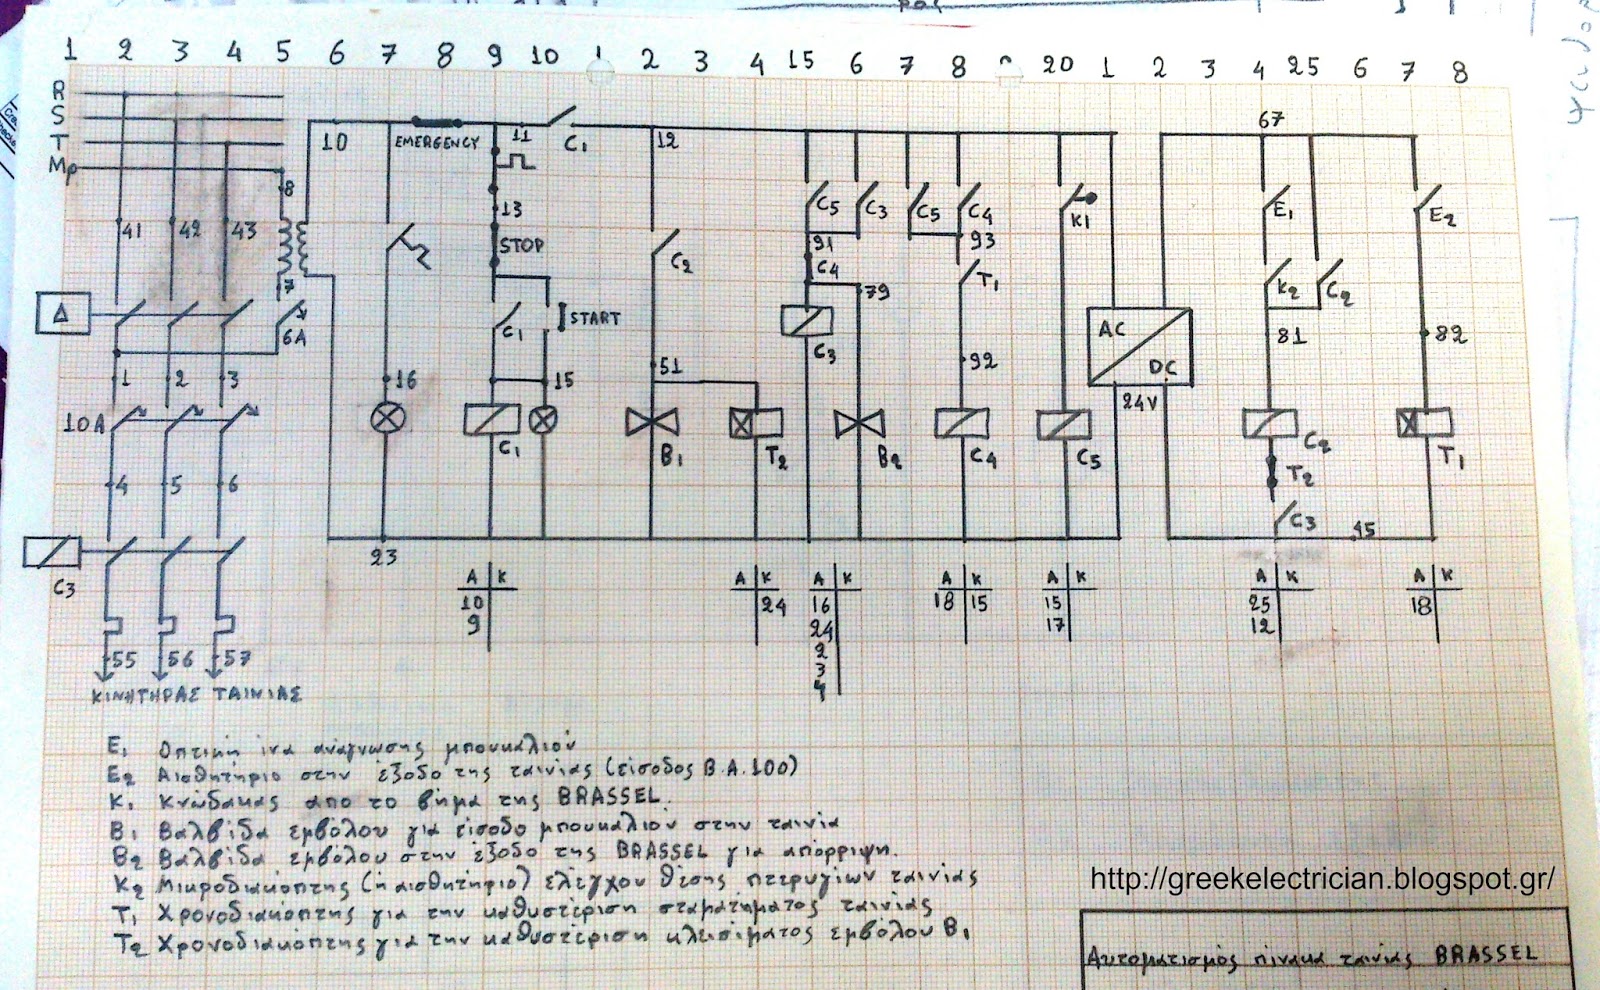 1 2 3 4 5 6 7 8 9 10 1 2 3 4 15 6 7 8 9 20 1 2 3 4 25 6 7 8
R
S
T
Mp
8
10
EMERGENCY
11
C1
12
67
13
STOP
41 42 43
7
Δ
6A
C1
START
C2
C5 C3 C5 C4
91
93
C4
79
T1
K1
E1
E2
K2 C2
AC
DC
24V
81
82
C3
1 2 3
16
15
51
92
10A
C1
B1
T2
B2
C4
C5
C2
T1
T2
C3
4 5 6
C3
23
45
A K
10
9
A K
24
A K
16
24
2
3
4
A K
18 15
A K
15
17
A K
25
12
A K
18
55 56 57
ΚΙΝΗΤΗΡΑΣ ΤΑΙΝΙΑΣ
E1 Οπτική ίνα ανάγνωσης μπουκαλιού
E2 Αισθητήριο στην έξοδο της ταινίας (είσοδος B.A.100)
K1 Κνώδακας απο το βήμα της BRASSEL.
B1 Βαλβίδα εμβόλου για είσοδο μπουκαλιού στην ταινία
B2 Βαλβίδα εμβόλου στην έξοδο της BRASSEL για απόρριψη.
K2 Μικροδιακόπτης (ή αισθητήριο) ελέγχου θέσης πτερυγίων ταινίας
T1 Χρονοδιακόπτης για την καθυστέριση σταματήματος ταινίας
T2 Χρονοδιακόπτης για την καθυστέριση κλεισίματος εμβόλου B1
http://greekelectrician.blogspot.gr/
Αυτοματισμός πίνακα ταινίας BRASSEL